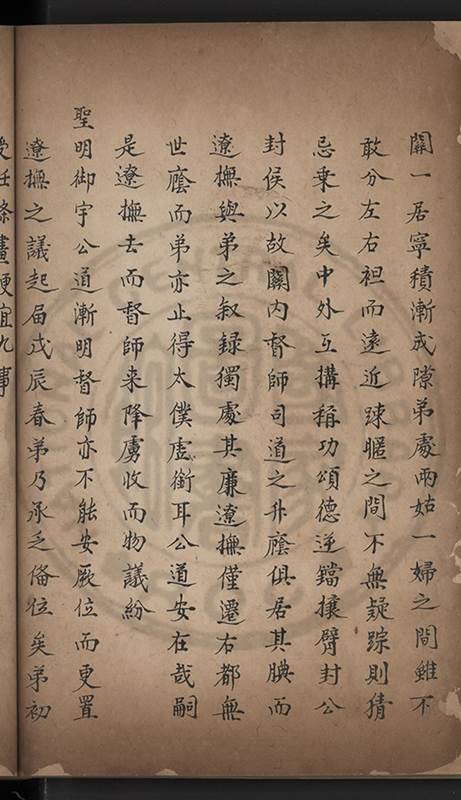 關一居寧積漸成隙弟處兩姑一婦之間雖不
敢分左右袒而遠近踈暱之間不無疑踪則猜
忌乗之矣中外互搆稱功頌德逆鐺攘臂封公
封侯以故關内督師司道之升廕俱居其腆而
遼撫與弟之叙録獨處其廉遼撫僅遷右都無
世廕而弟亦止得太僕虛銜耳公道安在哉嗣
是遼撫去而督師来降虜收而物議紛
聖明御宇公道漸明督師亦不能安厥位而更置
遼撫之議起届戊辰春弟乃承乏俻位矣弟初
受任條畫便宜九事